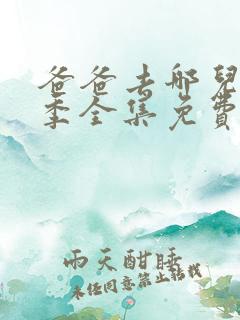 爸爸去哪兒
季全集免費
雨天酣睡
未经同意禁止转载